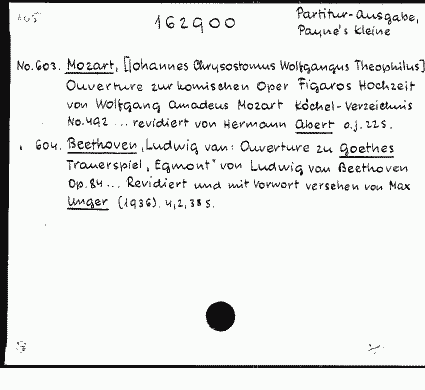 162900
Partitur-Ausgabe,
Payne's kleine
No. 603. Mozart, [Johannes Chrysostomus Wolfgangus Theophilus]
Ouverture zur komischen Oper Figaros Hochzeit
von Wolfgang Amadeus Mozart Köchel-Verzeichnis
No. 492 ... revidiert von Hermann Abert o.J. 22 S.
604. Beethoven, Ludwig van: Ouverture zu Goethes
Trauerspiel „Egmont" von Ludwig van Beethoven
Op. 84 ... Revidiert und mit Vorwort versehen von Max
Unger (1936). 4, 2, 38 S.